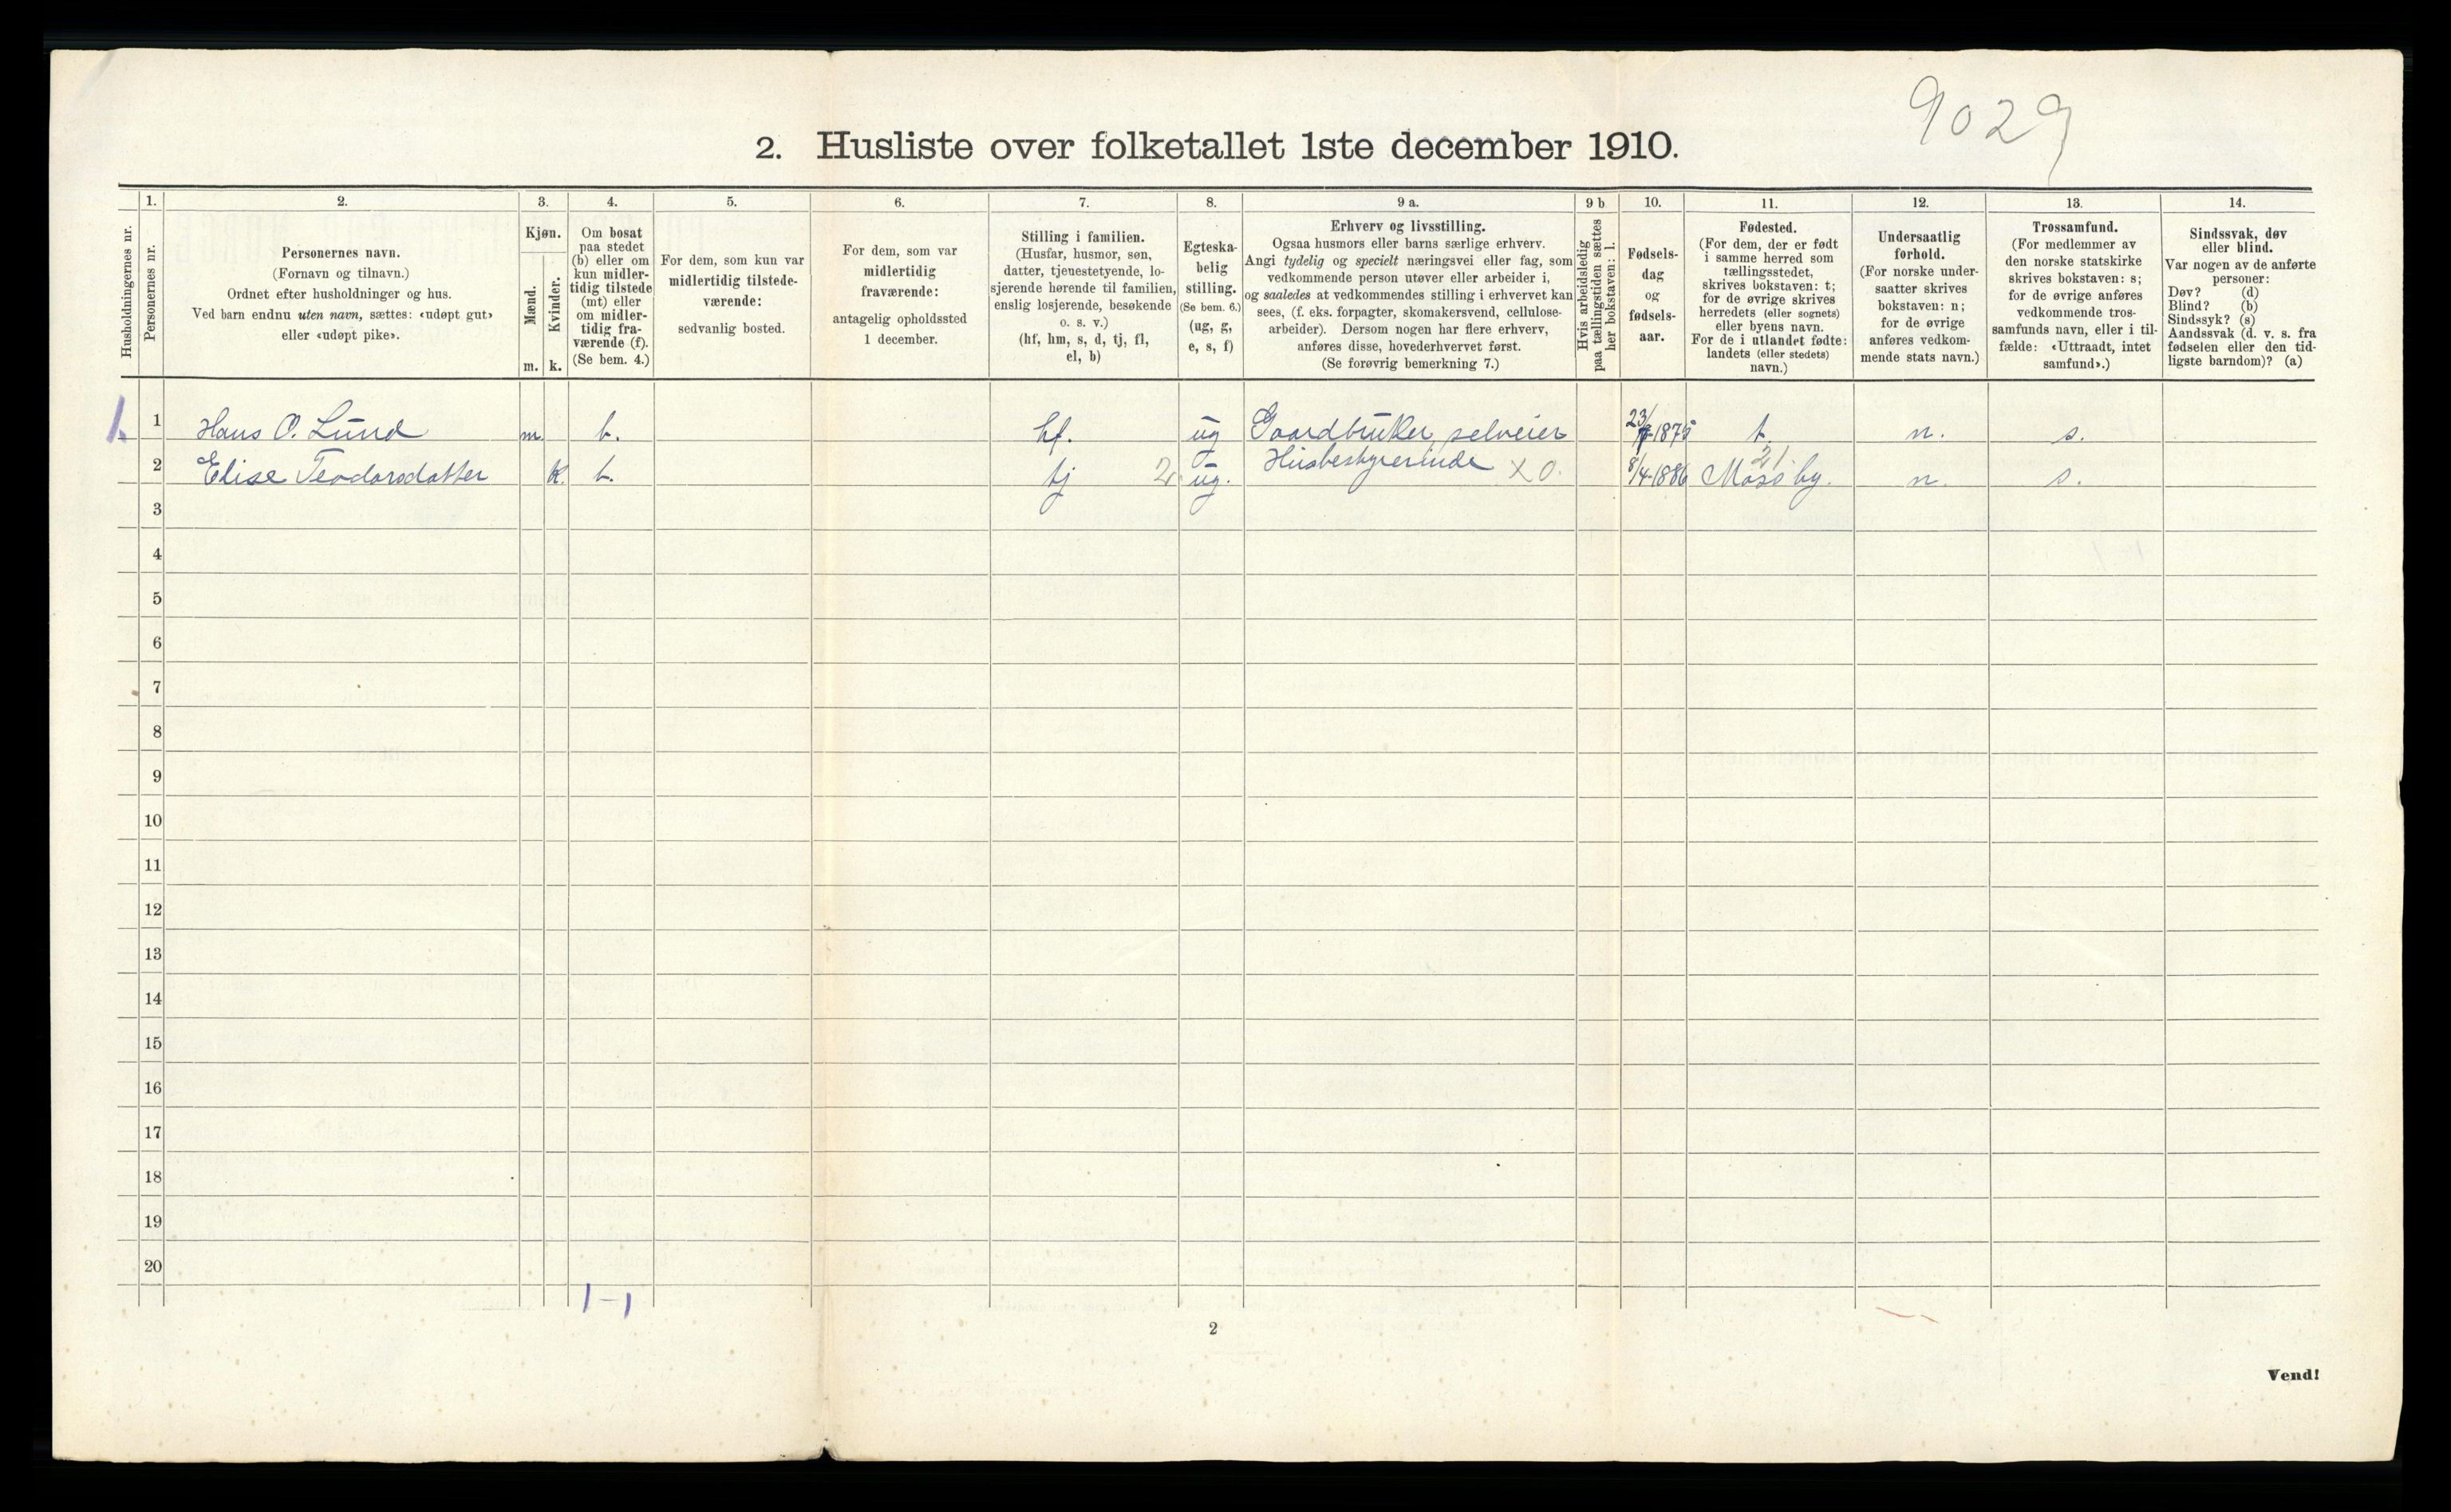 9029
2. Husliste over folketallet 1ste december 1910.
Husholdningernes nr.
1.
Personernes nr.
2.
Personernes navn.
(Fornavn og tilnavn.)
Ordnet efter husholdninger og hus.
Ved barn endnu uten navn, sættes: «udøpt gut»
eller «udøpt pike».
3.
Kjøn.
Mænd.
m.
Kvinder.
k.
4.
Om bosat
paa stedet
(b) eller om
kun midler-
tidig tilstede
(mt) eller
om midler-
tidig fra-
værende (f).
(Se bem. 4.)
5.
For dem, som kun var
midlertidig tilstede-
værende:
sedvanlig bosted.
6.
For dem, som var
midlertidig
fraværende:
antagelig opholdssted
1 december.
7.
Stilling i familien.
(Husfar, husmor, søn,
datter, tjenestetyende, lo-
sjerende hørende til familien,
enslig losjerende, besøkende
o. s. v.)
(hf, hm, s, d, tj, fl,
el, b)
8.
Egteska-
belig
stilling.
(Se bem. 6.)
(ug, g,
e, s, f)
9 a.
Erhverv og livsstilling.
Ogsaa husmors eller barns særlige erhverv.
Angi tydelig og specielt næringsvei eller fag, som
vedkommende person utøver eller arbeider i,
og saaledes at vedkommendes stilling i erhvervet kan
sees, (f. eks. forpagter, skomakersvend, cellulose-
arbeider). Dersom nogen har flere erhverv,
anføres disse, hovederhvervet først.
(Se forøvrig bemerkning 7.)
9 b
Hvis arbeidsledig
paa tællingstiden sættes
her bokstaven: l.
10.
Fødsels-
dag
og
fødsels-
aar.
11.
Fødested.
(For dem, der er født
i samme herred som
tællingsstedet,
skrives bokstaven: t;
for de øvrige skrives
herredets (eller sognets)
eller byens navn.
For de i utlandet fødte:
landets (eller stedets)
navn.)
12.
Undersaatlig
forhold.
(For norske under-
saatter skrives
bokstaven: n;
for de øvrige
anføres vedkom-
mende stats navn.)
13.
Trossamfund.
(For medlemmer av
den norske statskirke
skrives bokstaven: s;
for de øvrige anføres
vedkommende tros-
samfunds navn, eller i til-
fælde: «Uttraadt, intet
samfund».)
14.
Sindssvak, døv
eller blind.
Var nogen av de anførte
personer:
Døv? (d)
Blind? (b)
Sindssyk? (s)
Aandssvak (d. v. s. fra
fødselen eller den tid-
ligste barndom)? (a)
1. 1 Hans O. Lund m b. hf. ug Gaardbruker, selveier 23/ -1875 t. n. s.
2 Elise Teodorsdatter k. b. tj 2 ug. Husbestyrerinde x 0. 8/4-1886 21. Moss by. n. s.
3
4
5
6
7
8
9
10
11
12
13
14
15
16
17
18
19
20
1-1
2
Vend!